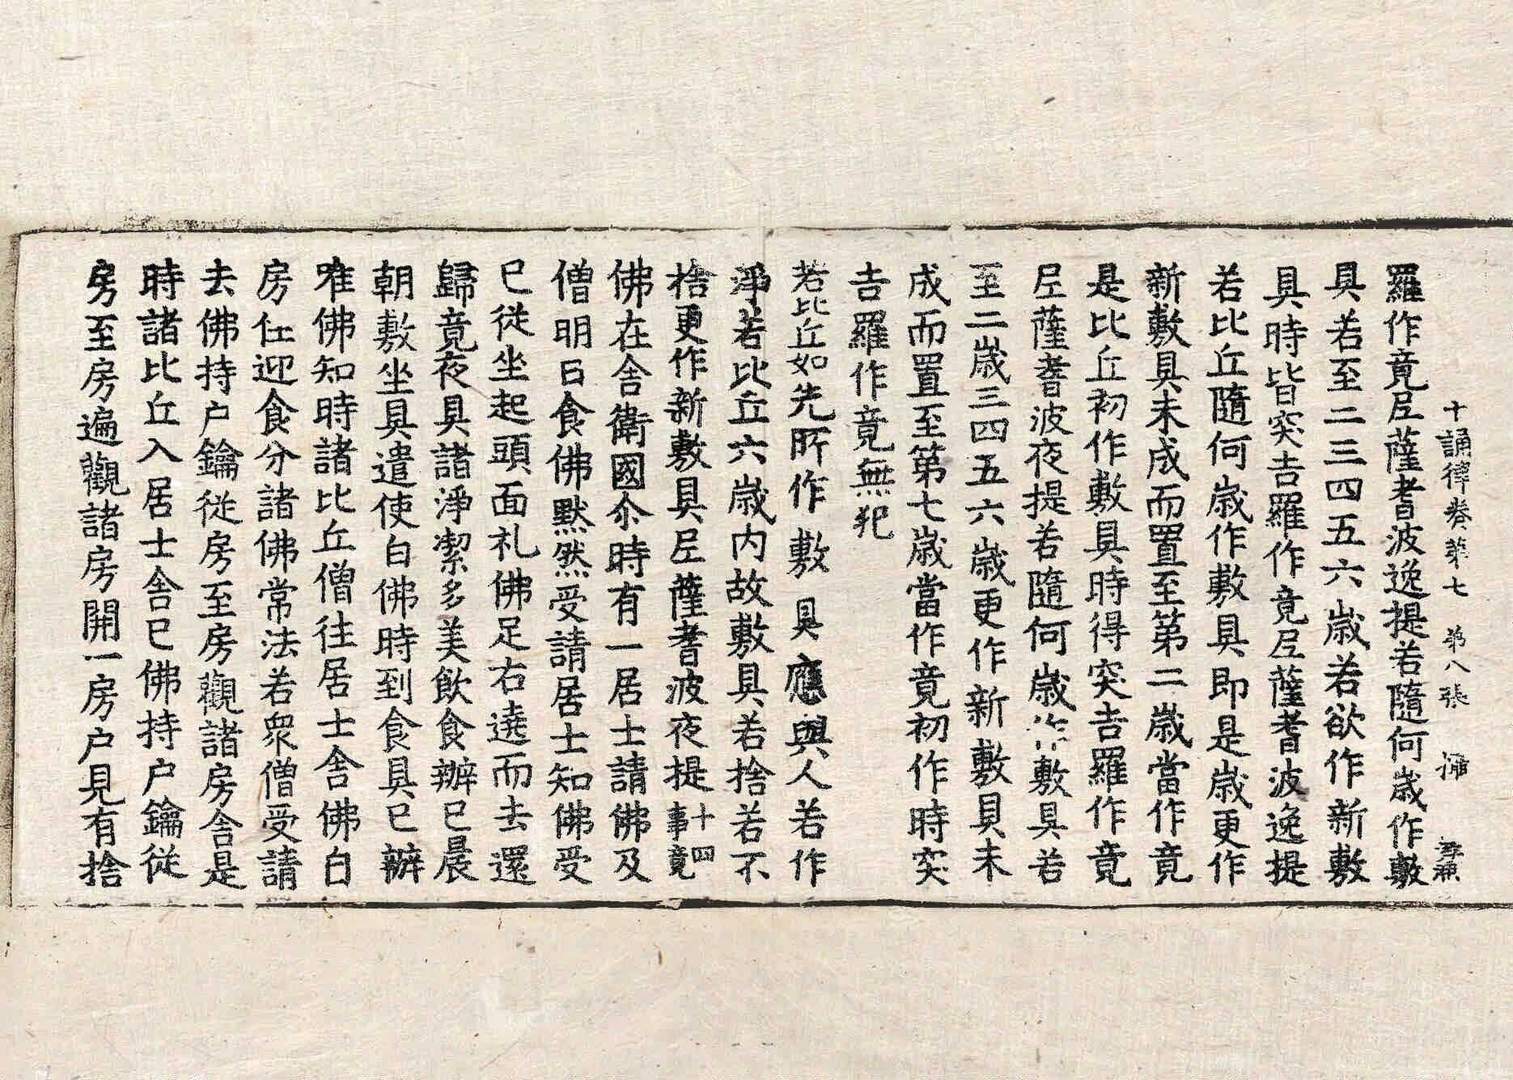 十誦律卷第七 第八張
羅作竟尼薩耆波逸提若隨何歲作敷
具若至二三四五六歲若欲作新敷
具時皆突吉羅作竟尼薩耆波逸提
若比丘隨何歲作敷具即是歲更作
新敷具未成而置至第二歲當作竟
是比丘初作敷具時得突吉羅作竟
尼薩耆波夜提若隨何歲作敷具若
至二歲三四五六歲更作新敷具未
成而置至第七歲當作竟初作時突
吉羅作竟無犯
若比丘如先所作敷具應與人若作
淨若比丘六歲內故敷具若捨若不
捨更作新敷具尼薩耆波夜提十四事竟
佛在舍衛國尒時有一居士請佛及
僧明日食佛默然受請居士知佛受
已從坐起頭面礼佛足右遶而去還
歸竟夜具諸淨潔多美飲食辦已晨
朝敷坐具遣使白佛時到食具已辦
唯佛知時諸比丘僧往居士舍佛自
房住迎食分諸佛常法若眾僧受請
去佛持户鑰從房至房觀諸房舍是
時諸比丘入居士舍已佛持户鑰從
房至房遍觀諸房開一房户見有捨